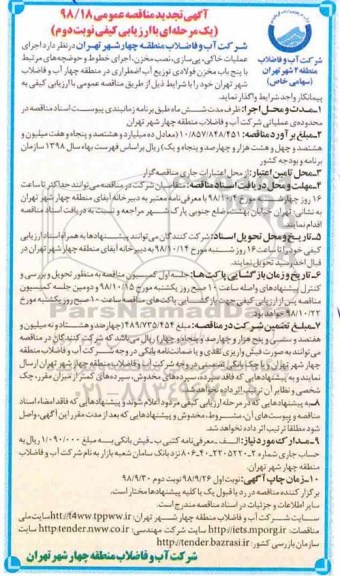 آگهی تجدید مناقصه عمومی ۹۸/۱۸
(یک مرحله ای با ارزیابی کیفی نوبت دوم)
شرکت آب و فاضلاب
منطقه ۴ شهر تهران
(سهامی خاص)
شرکت آب و فاضلاب منطقه چهار شهر تهران در نظر دارد اجرای
عملیات خاکی، پی‌سازی، نصب مخزن، اجرای خطوط و حوضچه‌های مرتبط
با پنج باب مخزن فولادی توزیع آب اضطراری در منطقه چهار آب و فاضلاب
شهر تهران خود را با شرایط ذیل از طریق مناقصه عمومی با ارزیابی کیفی به
پیمانکار واجد شرایط واگذار نماید.
۱-مدت و محل اجرا: ظرف مدت شش ماه طبق برنامه زمانبندی پیوست اسناد مناقصه در
محدوده‌ی عملیاتی شرکت آب و فاضلاب منطقه چهار شهر تهران
۲-مبلغ برآورد مناقصه: ۱۰/۸۵۷/۸۴۸/۴۵۱ (معادل ده میلیارد و هشتصد و پنجاه و هفت میلیون و
هشتصد و چهل و هشت هزار و چهارصد و پنجاه و یک) ریال براساس فهرست بهاء سال ۱۳۹۸ سازمان
برنامه و بودجه کشور
۳-محل تامین اعتبار: از محل اعتبارات جاری مناقصه‌گزار
۴-مهلت و محل دریافت اسناد مناقصه: متقاضیان شرکت در مناقصه می‌توانند حداکثر تا ساعت
۱۶ روز چهارشنبه با معرفی نامه معتبر به دبیرخانه آبفای منطقه چهار شهر تهران
به نشانی: تهران خیابان بهشت، ضلع جنوبی پارک شهر مراجعه و نسبت به دریافت اسناد مناقصه
اقدام نمایند
۵-تاریخ و محل تحویل اسناد: شرکت کنندگان می‌توانند پیشنهادها به همراه اسناد ارزیابی
کیفی خود را تا ساعت ۱۶ روز شنبه مورخ ۹۸/۱۰/۱۴ به دبیرخانه آبفای منطقه چهار شهر تهران در
قبال اخذ رسید تحویل نمایند.
۶-تاریخ و زمان بازگشایی پاکت‌ها: جلسه اول کمیسیون مناقصه به منظور تحویل و بررسی و
کنترل پیشنهادهای واصله ساعت ۱۰ صبح روز یکشنبه مورخ ۹۸/۱۰/۱۵ و دومین جلسه کمیسیون
مناقصه پس از ارزیابی کیفی جهت بازگشایی پاکت‌های مناقصه ساعت ۱۰ صبح روز یکشنبه مورخ
۹۸/۱۰/۲۲ خواهد بود.
۷-مبلغ تضمین شرکت در مناقصه: مبلغ ۴۸۹/۷۳۵/۴۵۴ (چهارصد و هشتاد و نه میلیون و
هفتصد و سی و پنج هزار و چهارصد و پنجاه و چهار) ریال می‌باشد که شرکت کنندگان در مناقصه
می‌توانند به صورت فیش واریز نقدی و یا ضمانت‌نامه بانکی در وجه شرکت آب و فاضلاب منطقه
چهار شهر تهران و یا چک بانکی تضمینی در وجه شرکت آب و فاضلاب منطقه چهار شهر تهران ارسال
نمایند و به پیشنهادهایی که فاقد سپرده، سپرده‌های مخدوش، سپرده‌های کمتر از میزان مقرر، چک
شخصی و نظایر آن ترتیب اثر داده نخواهد شد.
۸-به پیشنهادهایی که در مرحله ارزیابی کیفی مردود اعلام شوند و پیشنهادهایی که فاقد امضاء اسناد
مناقصه و پیوست‌های آن، مشروط، مخدوش و پیشنهادهایی که بعد از مدت مقرر این آگهی، واصل
شود مطلقا ترتیب اثر داده نخواهد شد.
۹-مدارک مورد نیاز: الف- معرفی‌نامه کتبی ب-فیش بانکی به مبلغ ۱/۰۹۰/۰۰۰ ریال به
حساب جاری شماره نزد بانک سامان شعبه بازار به نام شرکت آب و فاضلاب
منطقه چهار شهر تهران.
۱۰-زمان چاپ آگهی: نوبت اول ۹۸/۹/۲۶ نوبت دوم ۹۸/۹/۳۰
برگزار کننده مناقصه در رد یا قبول یک یا کلیه پیشنهادها مختار است.
سایر اطلاعات و جزئیات در اسناد مناقصه مندرج است.
سایت شرکت آب و فاضلاب منطقه چهار شهر تهران: http://f4ww.tppww.ir سایت ملی
مناقصات: http://iets.mporg.ir سایت شرکت مهندسی: http:tender.nww.co.ir
سازمان بازرسی کشور: http://tender.bazresi.ir
شرکت آب و فاضلاب منطقه چهار شهر تهران